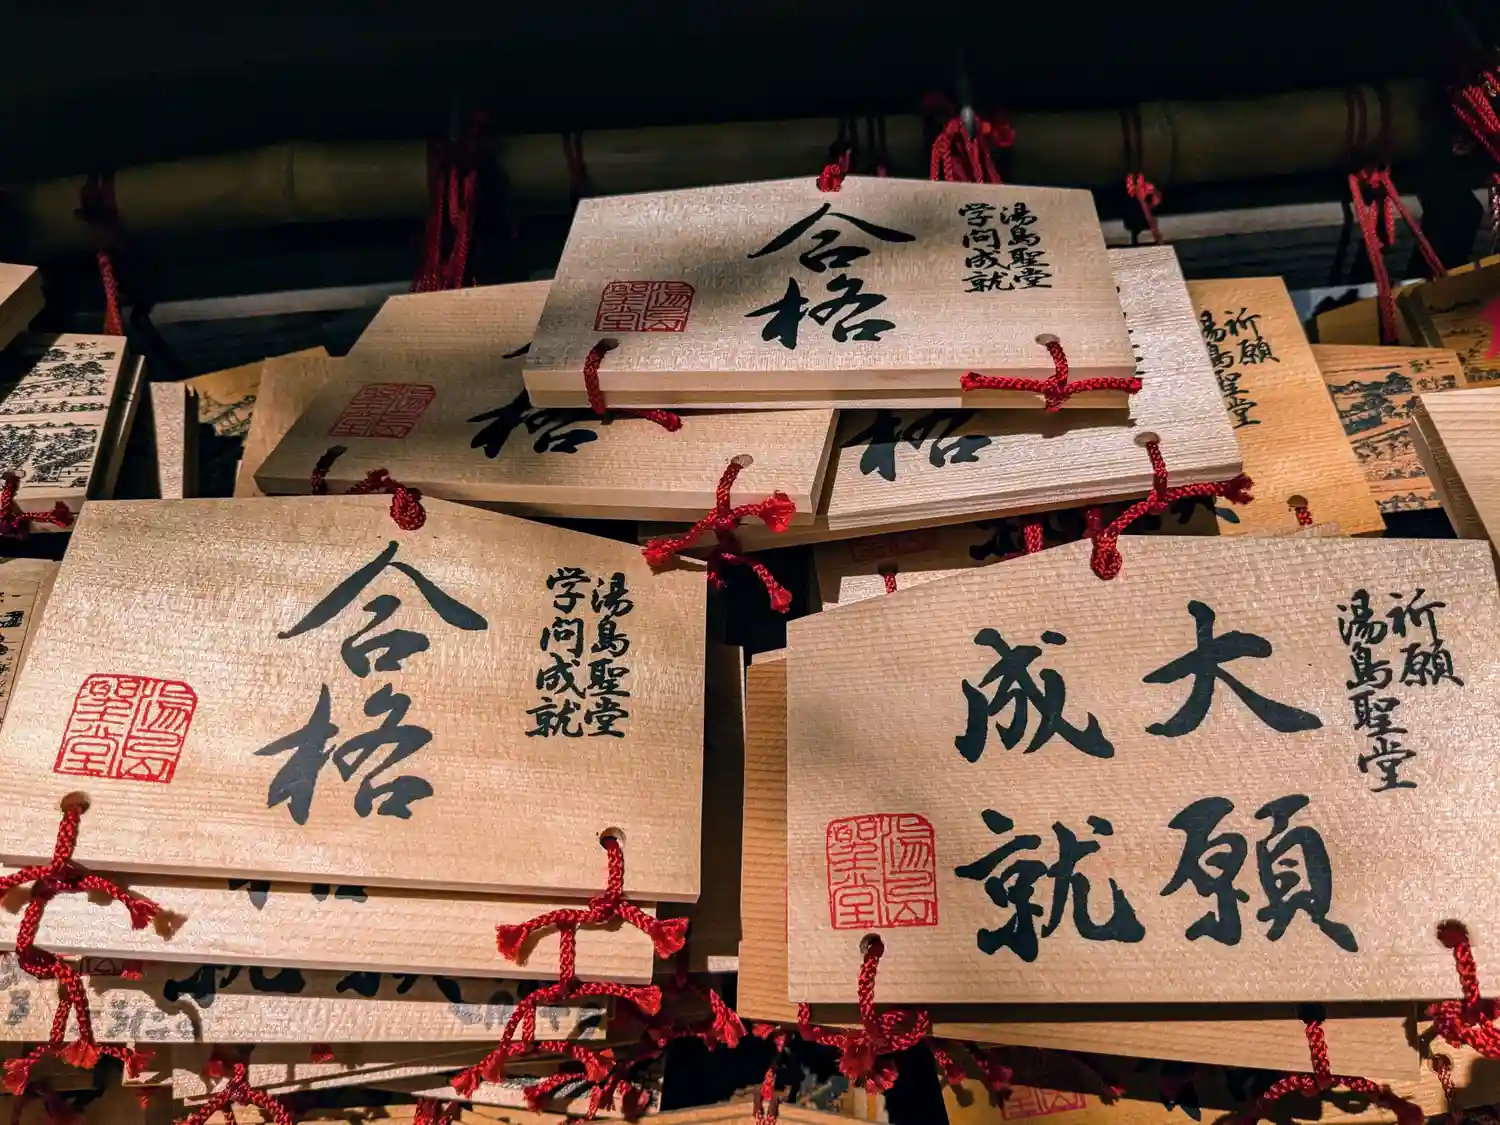 湯島聖堂
学問成就
合格
湯島聖堂
格
格
祈願
湯島聖堂
湯島聖堂
学問成就
合格
湯島聖堂
祈願
湯島聖堂
大願
成就
湯島聖堂